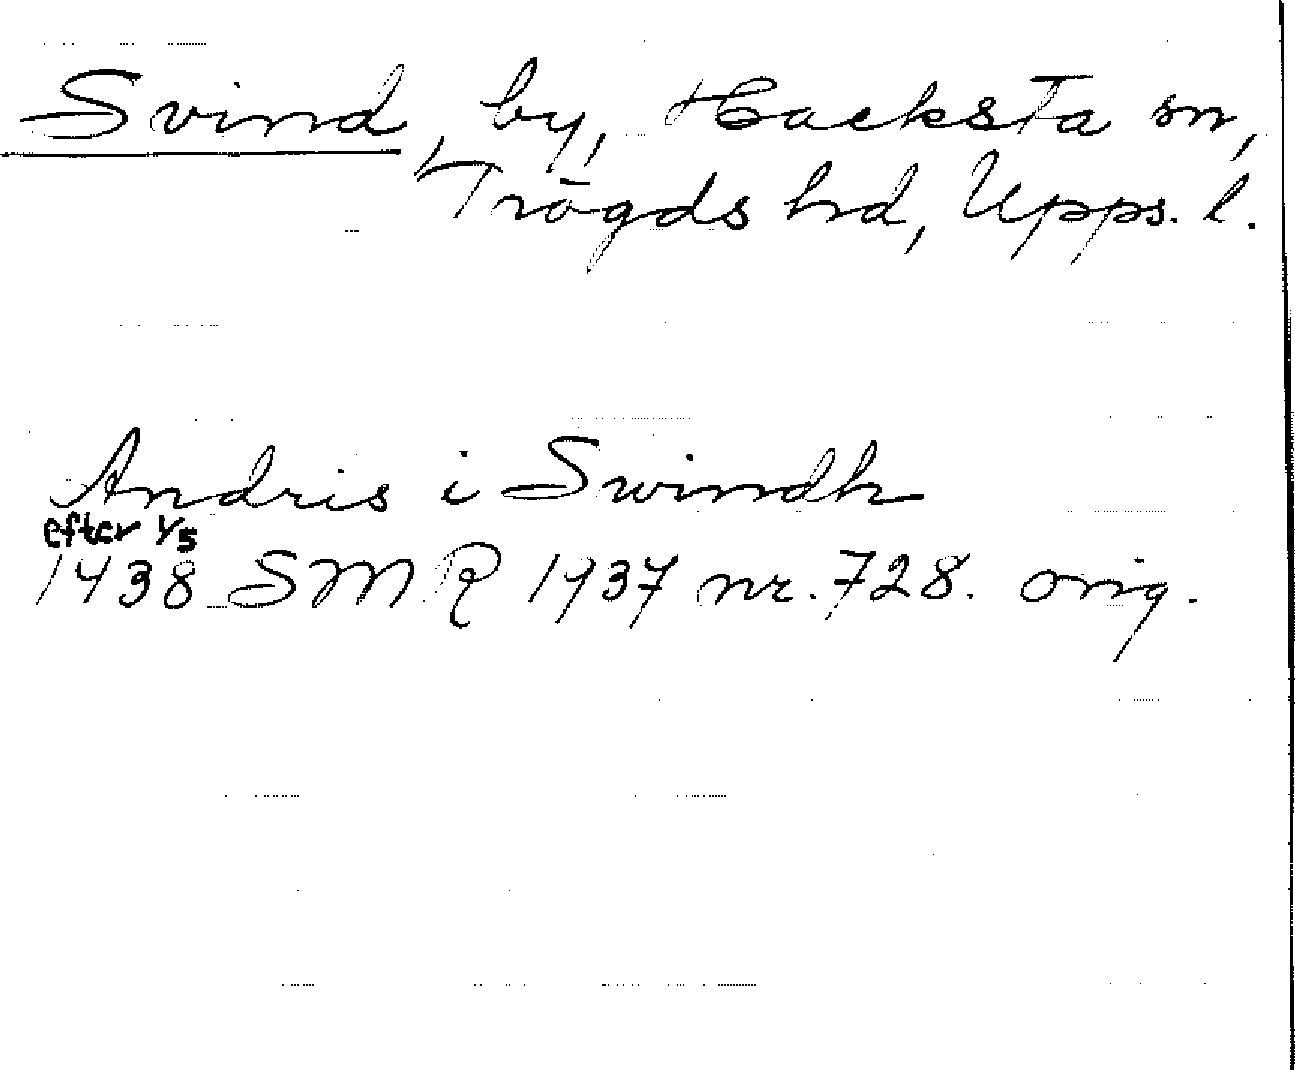 Svind, by, Hacksta sn,
Trögds hd, Upps. l.
Andris i Swindh
efter 1/5
1438 SMR 1937 nr. 728. orig.